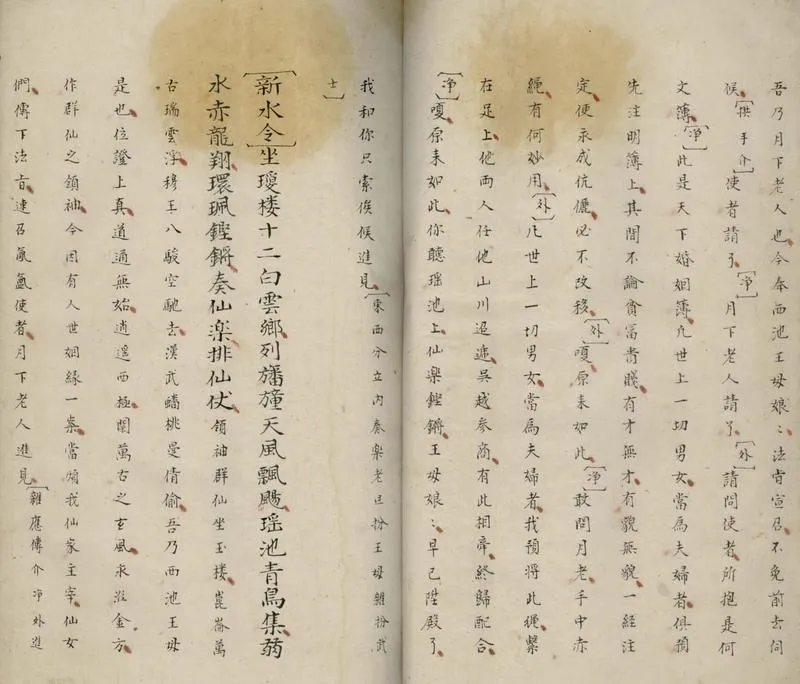 吾乃月下老人也今奉西池王母娘〻法旨宣召不免前去伺
候[拱手介]使者請了[净]月下老人請了[外]請問使者所抱是何
文簿[净]此是天下婚姻簿凢世上一切男女當為夫婦者俱預
先注明簿上其間不論貧富貴賤有才無才有貌無貌一經注
定便永成伉儷必不改移[外]嗄原来如此[净]敢問月老手中赤
繩有何妙用[外]凢世上一切男女當為夫婦者我預將此繩繫
在足上他両人任他山川迢遞吳越参商有此相牽終歸配合
[净]嗄原来如此你聽瑶池上仙樂鏗鏘王母娘〻早已陞殿了
我和你只索俟候進見[東西分立内奏樂老旦扮王母雜扮武
士]
[新水令]坐瓊楼十二白雲鄉列旛幢天風飄颺瑶池青鳥集蒻
水赤龍翔環珮鏗鏘奏仙楽排仙仗領袖群仙坐玉楼崑崙萬
古瑞雲浮穆王八駿空馳去漢武蟠桃曼倩偷吾乃西池王母
是也位證上真道通無始逍遥西極闡萬古之玄風来金方
作群仙之領袖今因有人世姻緣一案當煩我仙家主宰仙女
們傳下法旨速召氤氳使者月下老人進見[雜應傳介净外進